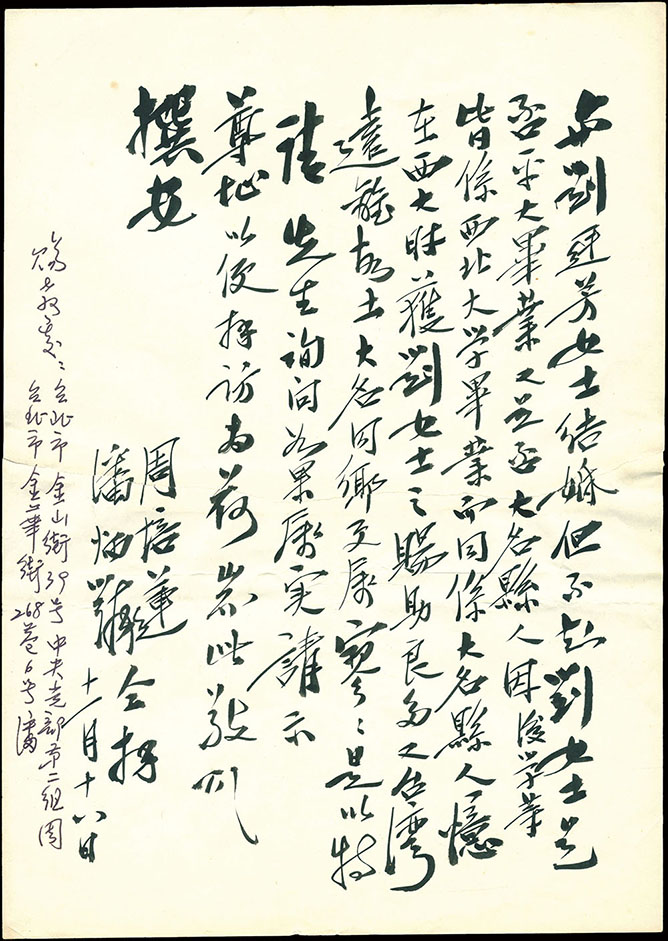 与劉廷芳女士結婚但不知劉女士是
否平大畢業又是否大名縣人因後学業
皆係西北大学畢業而同係大名縣人憶
在西大時獲劉女士之賜助良多又台湾
遠離故土大名同鄉更属寥寥是以特
請先生詢问如果属实請示
尊址以便拜访为荷耑此敬叩
撰安
周培蓮
潘
仝拜
十一月十八日
台北市金山街39号中央党部第二组周
台北市金華街268巷6号潘